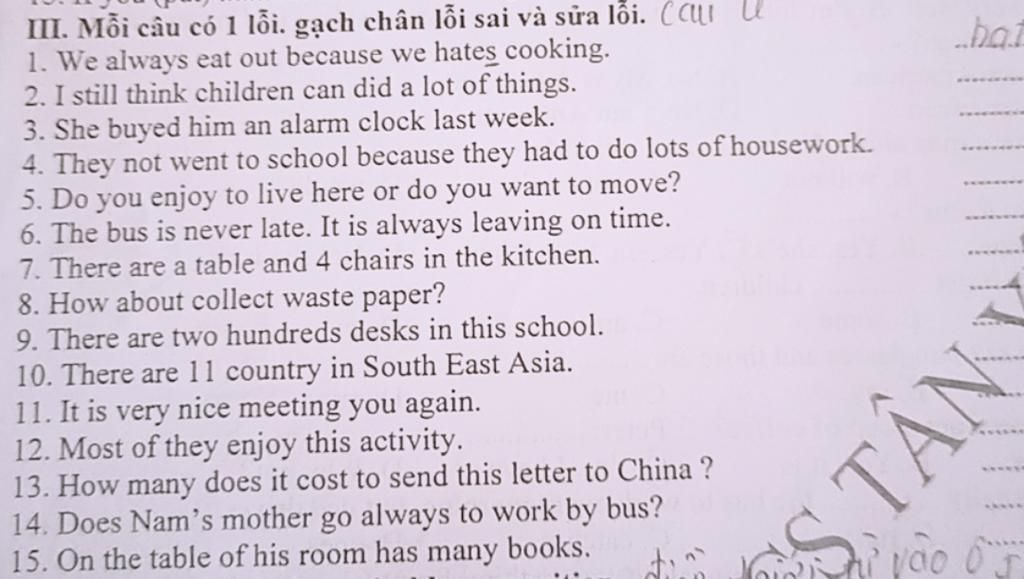 III. Mỗi câu có 1 lỗi. gạch chân lỗi sai và sửa lỗi.
1. We always eat out because we hates cooking.
2. I still think children can did a lot of things.
3. She buyed him an alarm clock last week.
4. They not went to school because they had to do lots of housework.
5. Do you enjoy to live here or do you want to move?
6. The bus is never late. It is always leaving on time.
7. There are a table and 4 chairs in the kitchen.
8. How about collect waste paper?
9. There are two hundreds desks in this school.
10. There are 11 country in South East Asia.
11. It is very nice meeting you again.
12. Most of they enjoy this activity.
13. How many does it cost to send this letter to China ?
14. Does Nam's mother go always to work by bus?
15. On the table of his room has many books.
TÂN
vào